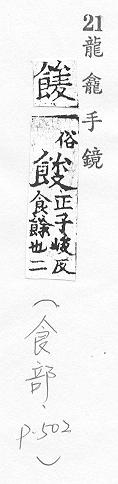 21 龍龕手鏡
俗 餕 正子峻反
食餘也二
(食部、p.502)